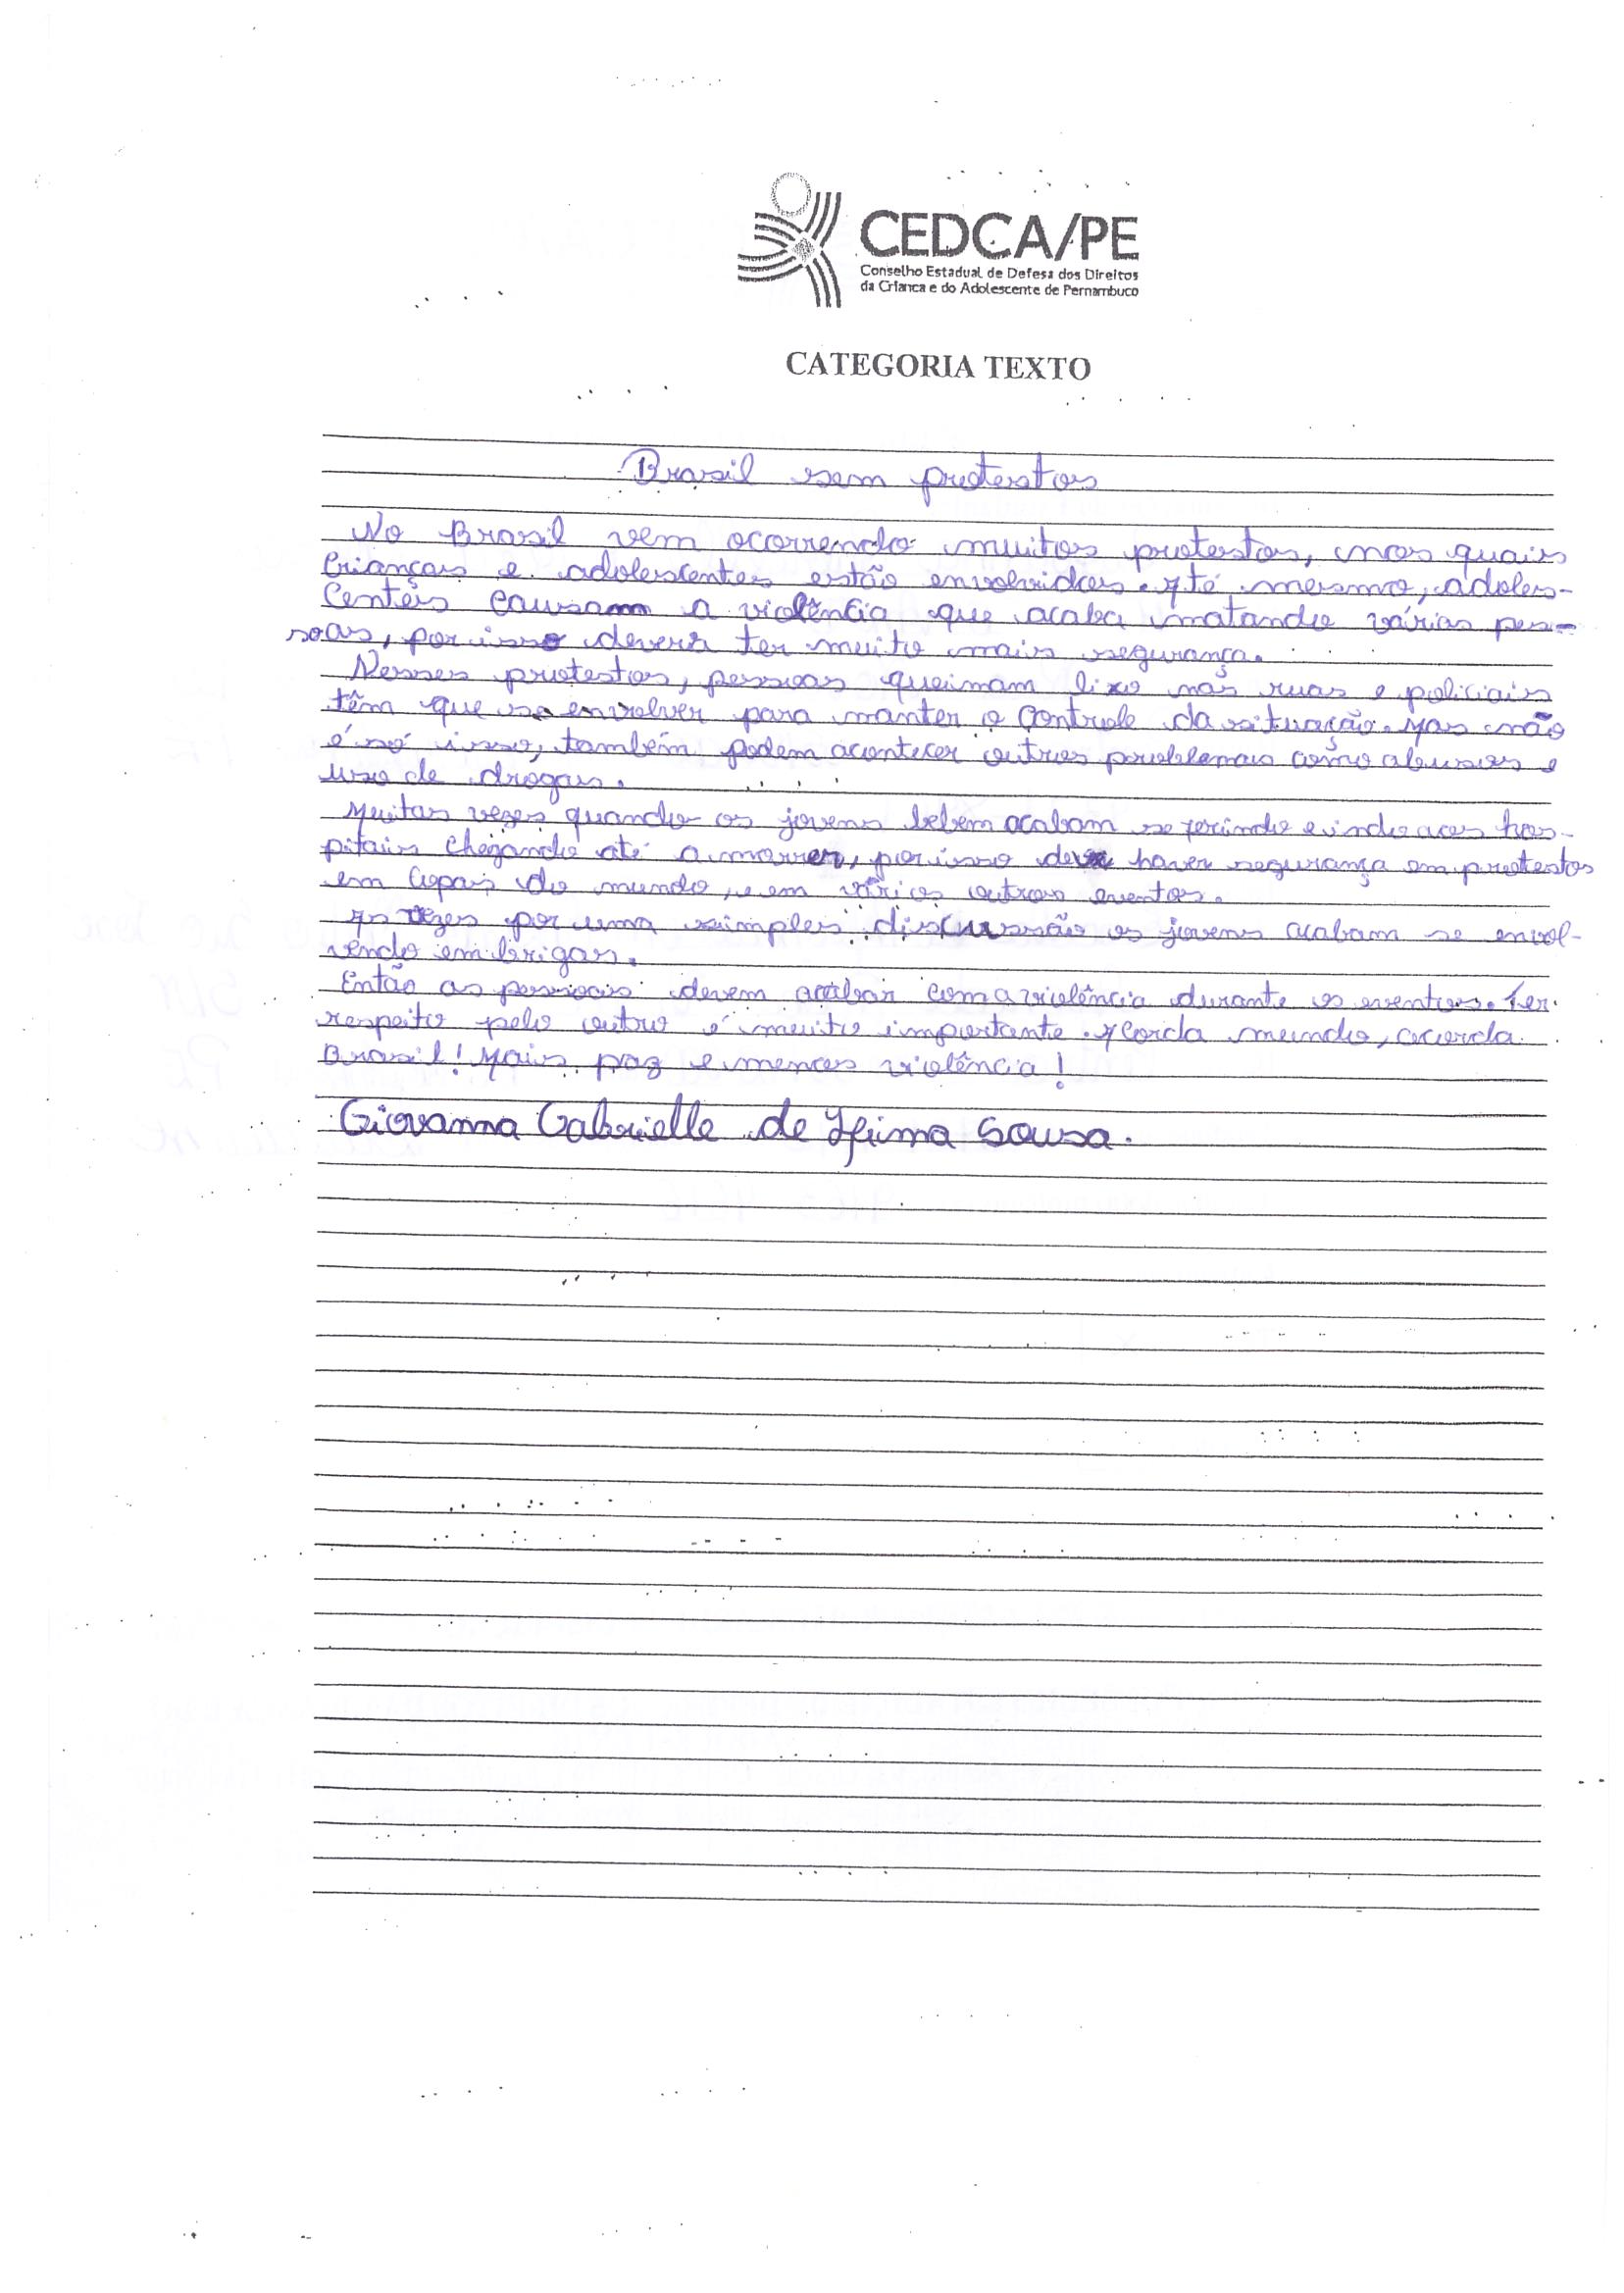 CEDCA/PE
Conselho Estadual de Defesa dos Direitos
da Criança e do Adolescente de Pernambuco
CATEGORIA TEXTO
Brasil sem protestos
No Brasil vem ocorrendo muitos protestos, nos quais
crianças e adolescentes estão envolvidos. Até mesmo, adoles-
centes causam a violência que acaba matando várias pes-
soas, por isso deverá ter muito mais segurança.
Nesses protestos, pessoas queimam lixo nas ruas e policiais
têm que se envolver para manter o controle da situação. Mas não
é só isso, também podem acontecer outros problemas como abusos e
uso de drogas.
Muitas vezes quando os jovens bebem acabam se ferindo e indo aos hos-
pitais chegando até a morrer, por isso deve haver segurança em protestos
em copas do mundo, e em vários outros eventos.
As vezes por uma simples discussão os jovens acabam se envol-
vendo em brigas.
Então as pessoas devem acabar com a violência durante os eventos. Ter
respeito pelo outro é muito importante. Acorda mundo, acorda
Brasil! Mais paz e menos violência!
Giovanna Gabrielle de Lima Sousa.